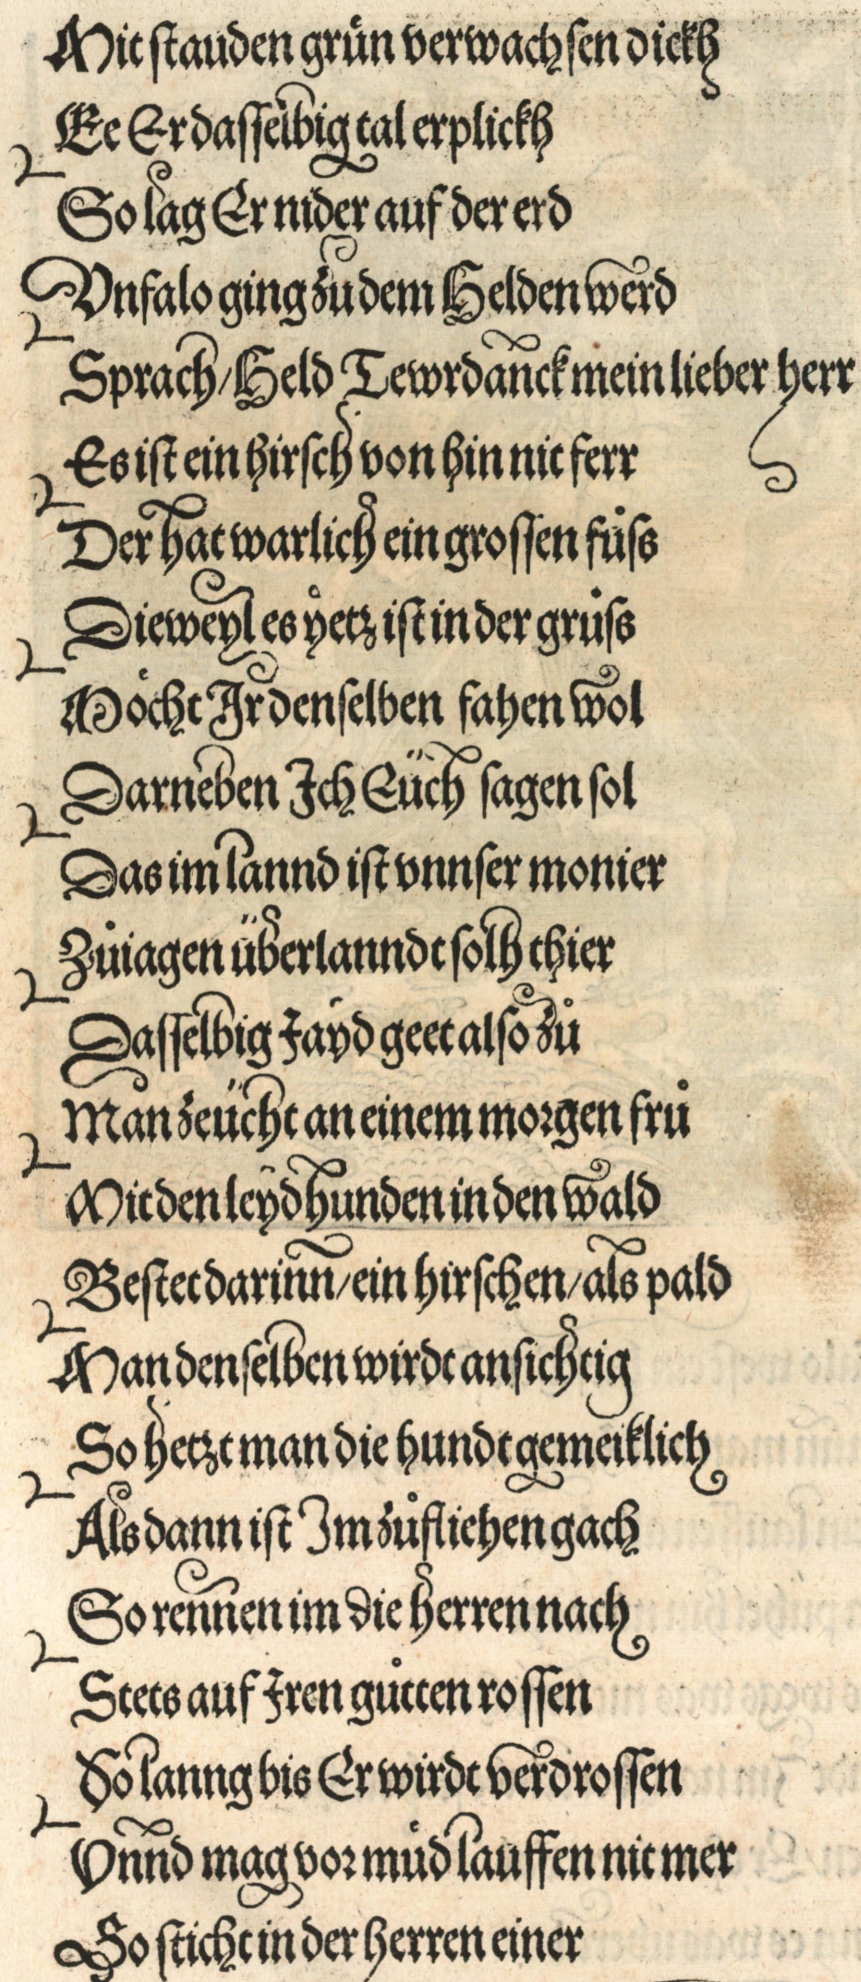 Mit stauden grůn verwachsen dickh
Ee Er dasselbig tal erplickh
So lag Er nider auf der erd
Vnfalo ging zu dem Helden werd
Sprach/Held Tewrdanck mein lieber herr
Es ist ein hirsch von hin nit ferr
Der hat warlich ein grossen fůss
Dieweyl es yetz ist in der grůss
Mocht Ir denselben fahen wol
Darneben Ich Eüch sagen sol
Das im lannd ist vnnser monier
Zůiagen überlanndt solh thier
Dasselbig Jayd geet also zů
Man zeücht an einem morgen frů
Mit den leydhunden in den wald
Bestet darinn/ein hirschen/als pald
Man denselben wirdt ansichtig
So hetzt man die hundt gemeiklich
Als dann ist Im zůfliehen gach
So rennen im die herren nach
Stets auf Iren gůtten rossen
So lanng bis Er wirdt verdrossen
Vnnd mag vor můd lauffen nit mer
So sticht in der herren einer